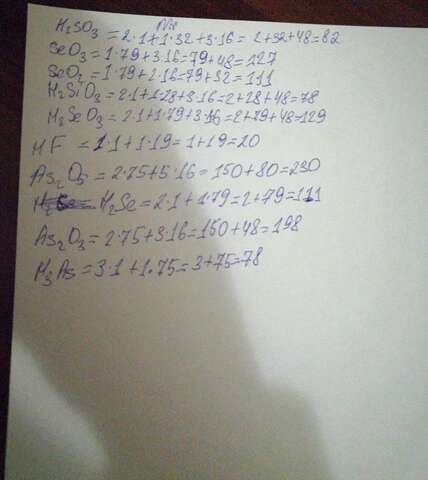 H₂SO₃ = 2·1+1·32+3·16= 2+32+48=82
SeO₃ = 1·79+3·16=79+48=127
SeO₂ = 1·79+2·16=79+32=111
H₂SiO₃= 2·1+1·28+3·16=2+28+48=78
H₂SeO₃= 2·1+1·79+3·16=2+79+48=129
HF = 1·1+1·19=1+19=20
As₂O₅=2·75+5·16=150+80=230
H₂Se=2·1+1·79=2+79=111
As₂O₃=2·75+3·16=150+48=198
H₃As=3·1+1·75=3+75=78